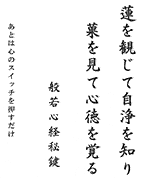 蓮を観じて自浄を知り
菓を見て心徳を覚る
般若心経秘鍵
あとは心のスイッチを押すだけ